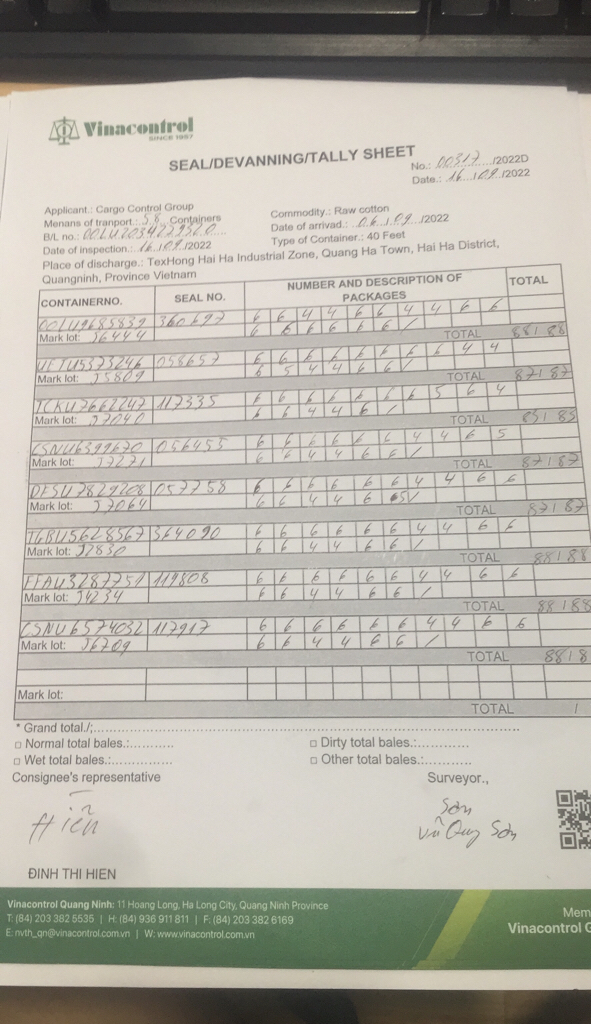 Vinacontrol
SINCE 1957
SEAL/DEVANNING/TALLY SHEET
No.: 00317 /2022D
Date.: 16 / 09 /2022
Applicant.: Cargo Control Group
Commodity.: Raw cotton
Menans of tranport.: 58 Containers
Date of arrivad.: 06 / 09 /2022
B/L no.:
Type of Container.: 40 Feet
Date of inspection.: 16 / 09 /2022
Place of discharge.: TexHong Hai Ha Industrial Zone, Quang Ha Town, Hai Ha District,
Quangninh, Province Vietnam
CONTAINERNO. SEAL NO. NUMBER AND DESCRIPTION OF PACKAGES TOTAL
OOLU9685839 360697 6 6 4 4 6 6 4 4 6 6
Mark lot: 36444 6 6 6 6 6 6 /
TOTAL 88/88
058657 6 6 6 6 6 6 6 6 4 4
Mark lot: 35809 6 5 4 4 6 6 /
TOTAL 87/87
TCKU7662247 117335 6 6 6 6 6 6 6 5 6 4
Mark lot: 37040 6 6 4 4 6 /
TOTAL
CSNU6399670 056455 6 6 6 6 6 6 4 4 6 5
Mark lot: 37271 6 6 4 4 6 6 /
TOTAL 87/87
057758 6 6 6 6 6 6 4 4 6 6
Mark lot: 37064 6 6 4 4 6
TOTAL 87/87
TGBU5628567 364090 6 6 6 6 6 6 4 4 6 6
Mark lot: 32830 6 6 4 4 6 6 /
TOTAL 88/88
119808 6 6 6 6 6 6 4 4 6 6
Mark lot: 34234 6 6 4 4 6 6 /
TOTAL 88/88
CSNU6574032 117917 6 6 6 6 6 6 4 4 6 6
Mark lot: 36709 6 6 4 4 6 6 /
TOTAL 88/8
Mark lot:
TOTAL /
* Grand total./;
□ Normal total bales.:
□ Dirty total bales.:
□ Wet total bales.:
□ Other total bales.:
Consignee's representative Surveyor.,
Hiền
Sơn
Vũ Quy Sơn
ĐINH THI HIEN
Vinacontrol Quang Ninh: 11 Hoang Long, Ha Long City, Quang Ninh Province
T: (84) 203 382 5535 | H: (84) 936 911 811 | F. (84) 203 382 6169
E: nvth_qn@vinacontrol.com.vn | W: www.vinacontrol.com.vn
Mem
Vinacontrol G